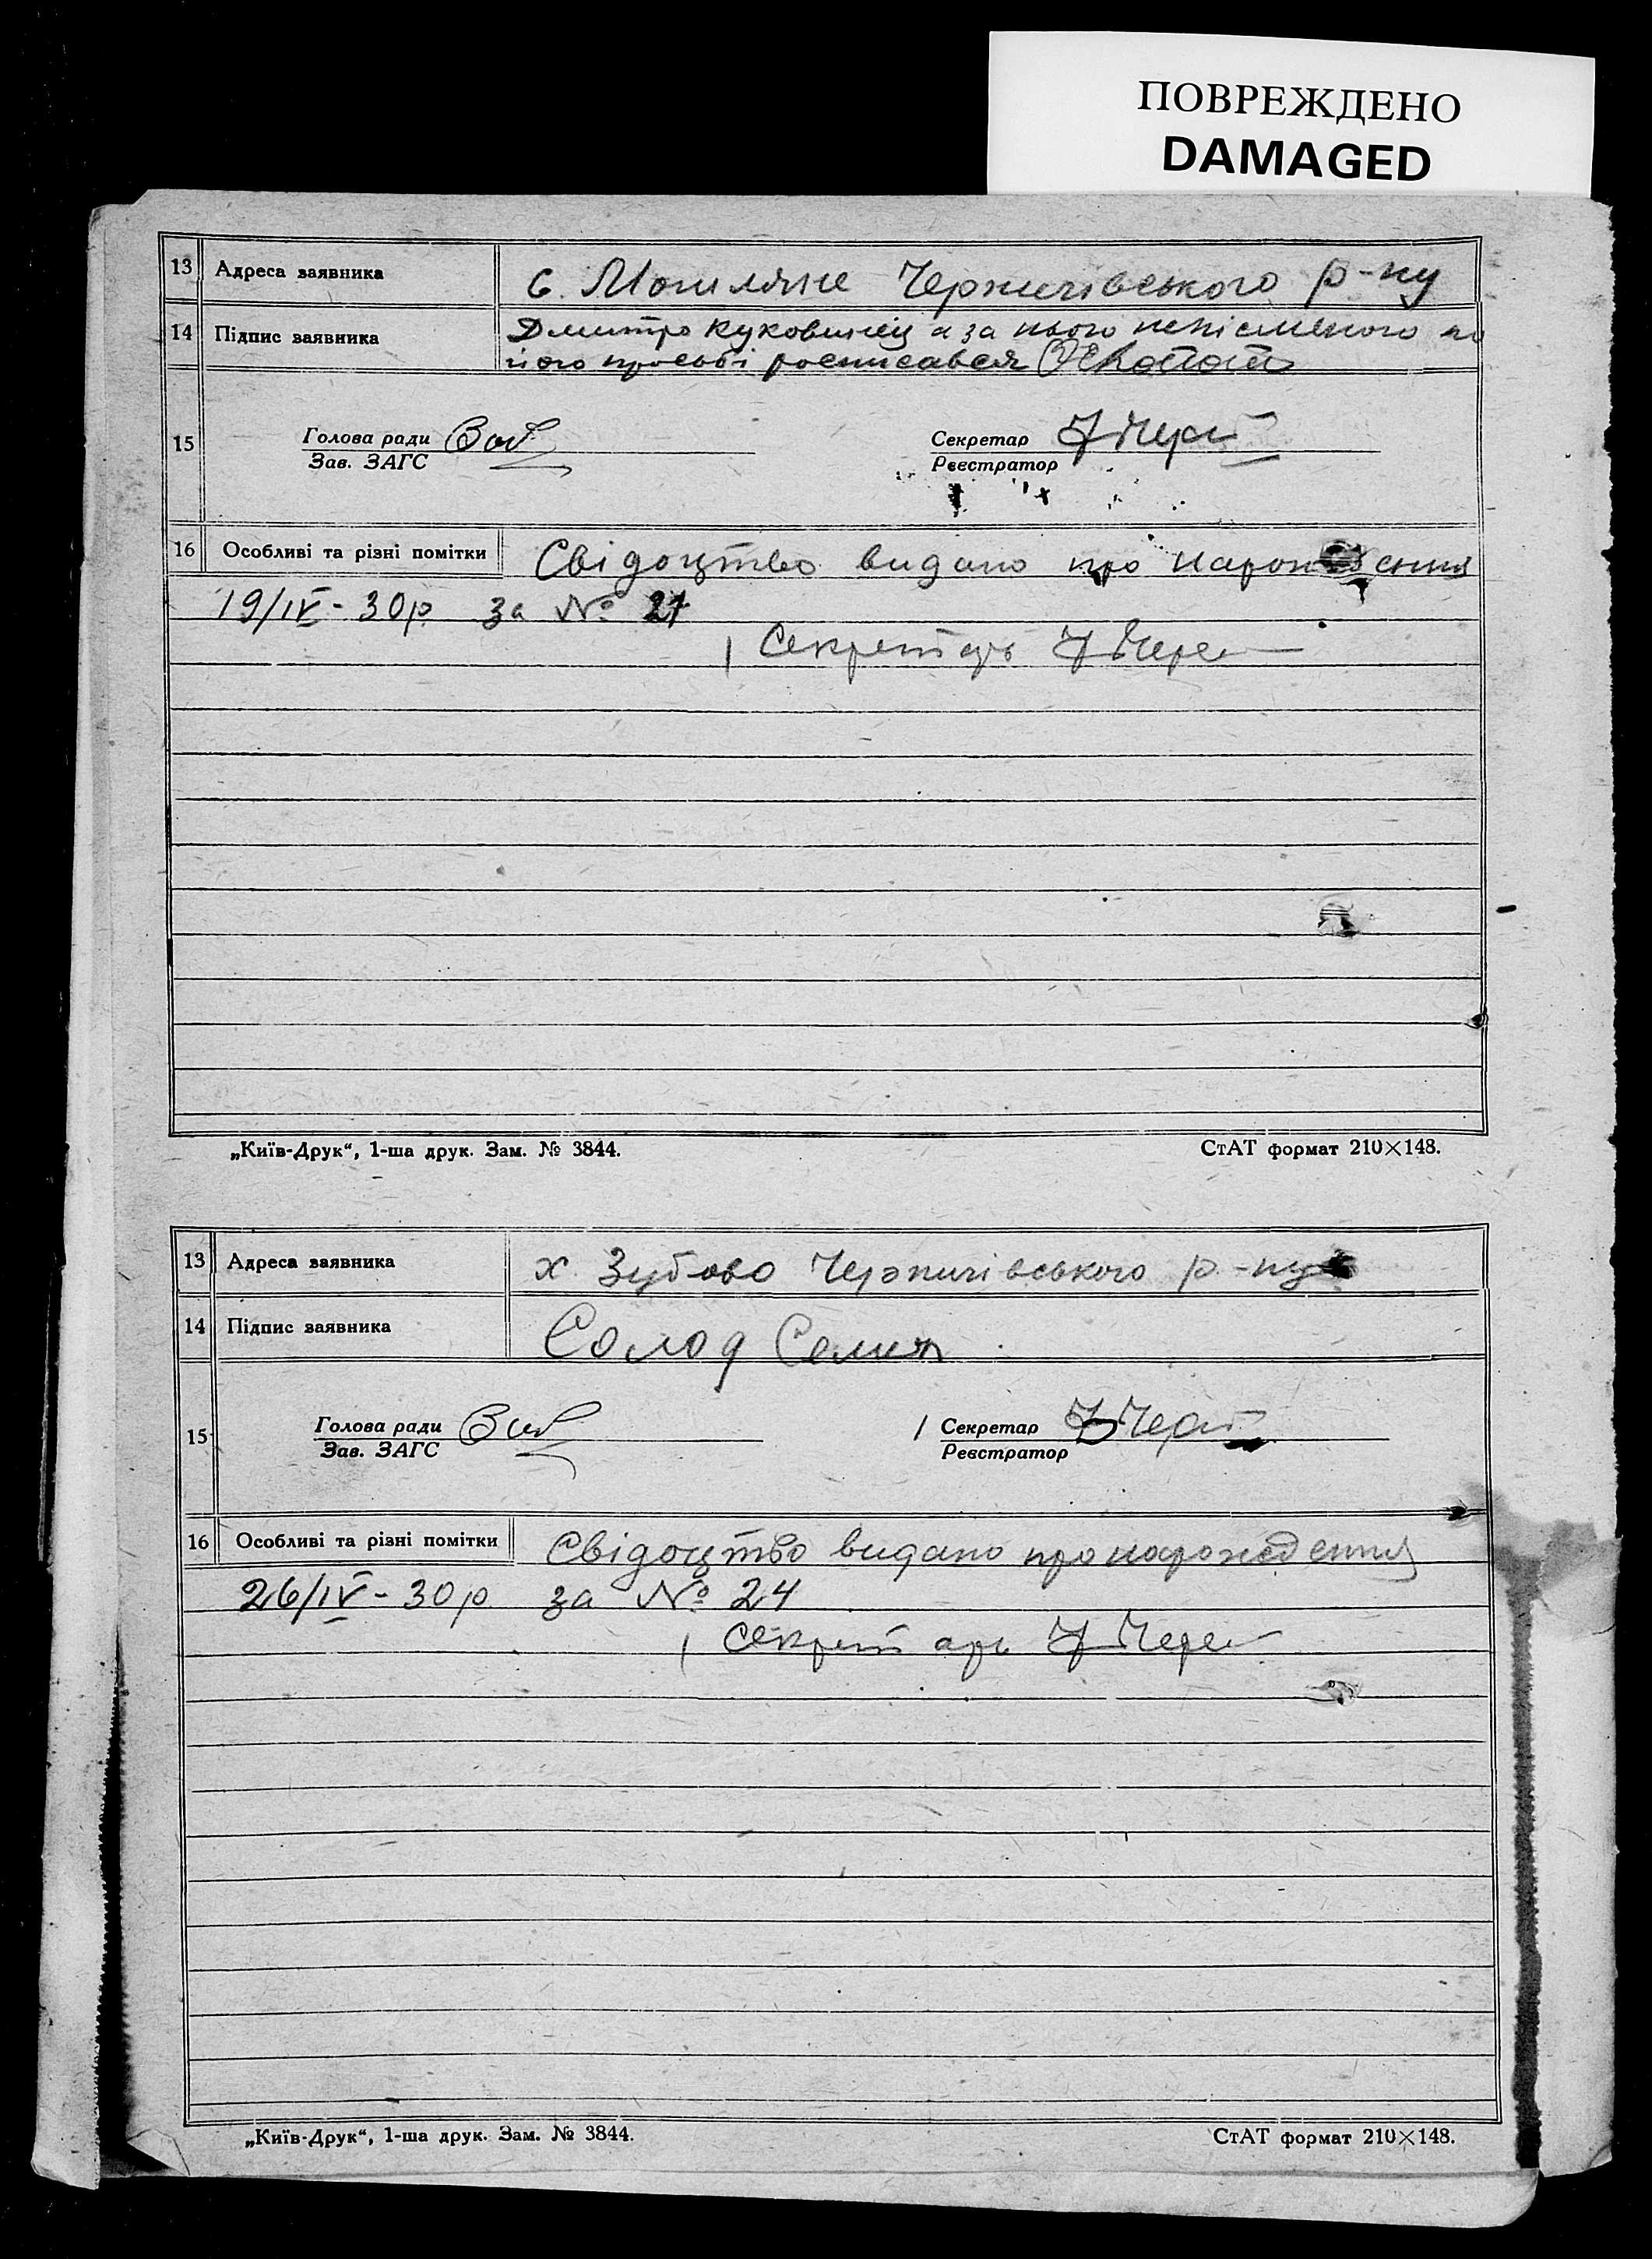 ПОВРЕЖДЕНО
DAMAGED
13 Адреса заявника с. Могиляне Черничівського р-ну
14 Підпис заявника Дмитро Куковинец а за нього непісменого по
його просьбі росписався
15 Голова ради Секретар
Зав. ЗАГС Реєстратор
16 Особливі та різні помітки Свідоцтво видано про нарождення
19/IV-30р за № 21
Секретарь
„Київ-Друк“, 1-ша друк. Зам. № 3844. СтАТ формат 210×148.
13 Адреса заявника х Зубово Черничівського р-ну
14 Підпис заявника Солод
15 Голова ради Секретар
Зав. ЗАГС Реєстратор
16 Особливі та різні помітки Свідоцтво видано про нарождення
26/IV-30р за № 24
Секретарь
„Київ-Друк“, 1-ша друк. Зам. № 3844. СтАТ формат 210×148.